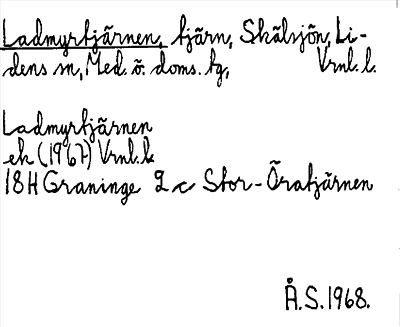 Ladmyrtjärnen, tjärn, Skälsjön, Li-
dens sn, Med. ö. doms. tg, Vrnl. l.
Ladmyrtjärnen
ek (1967) Vrnl. l.
18H Graninge 2 c Stor-Öratjärnen
Å.S. 1968.